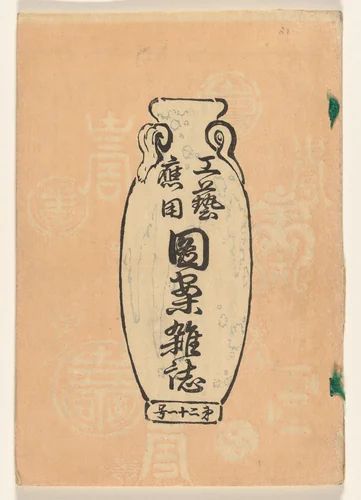 工藝
應用
圖案雑誌
第二十一号